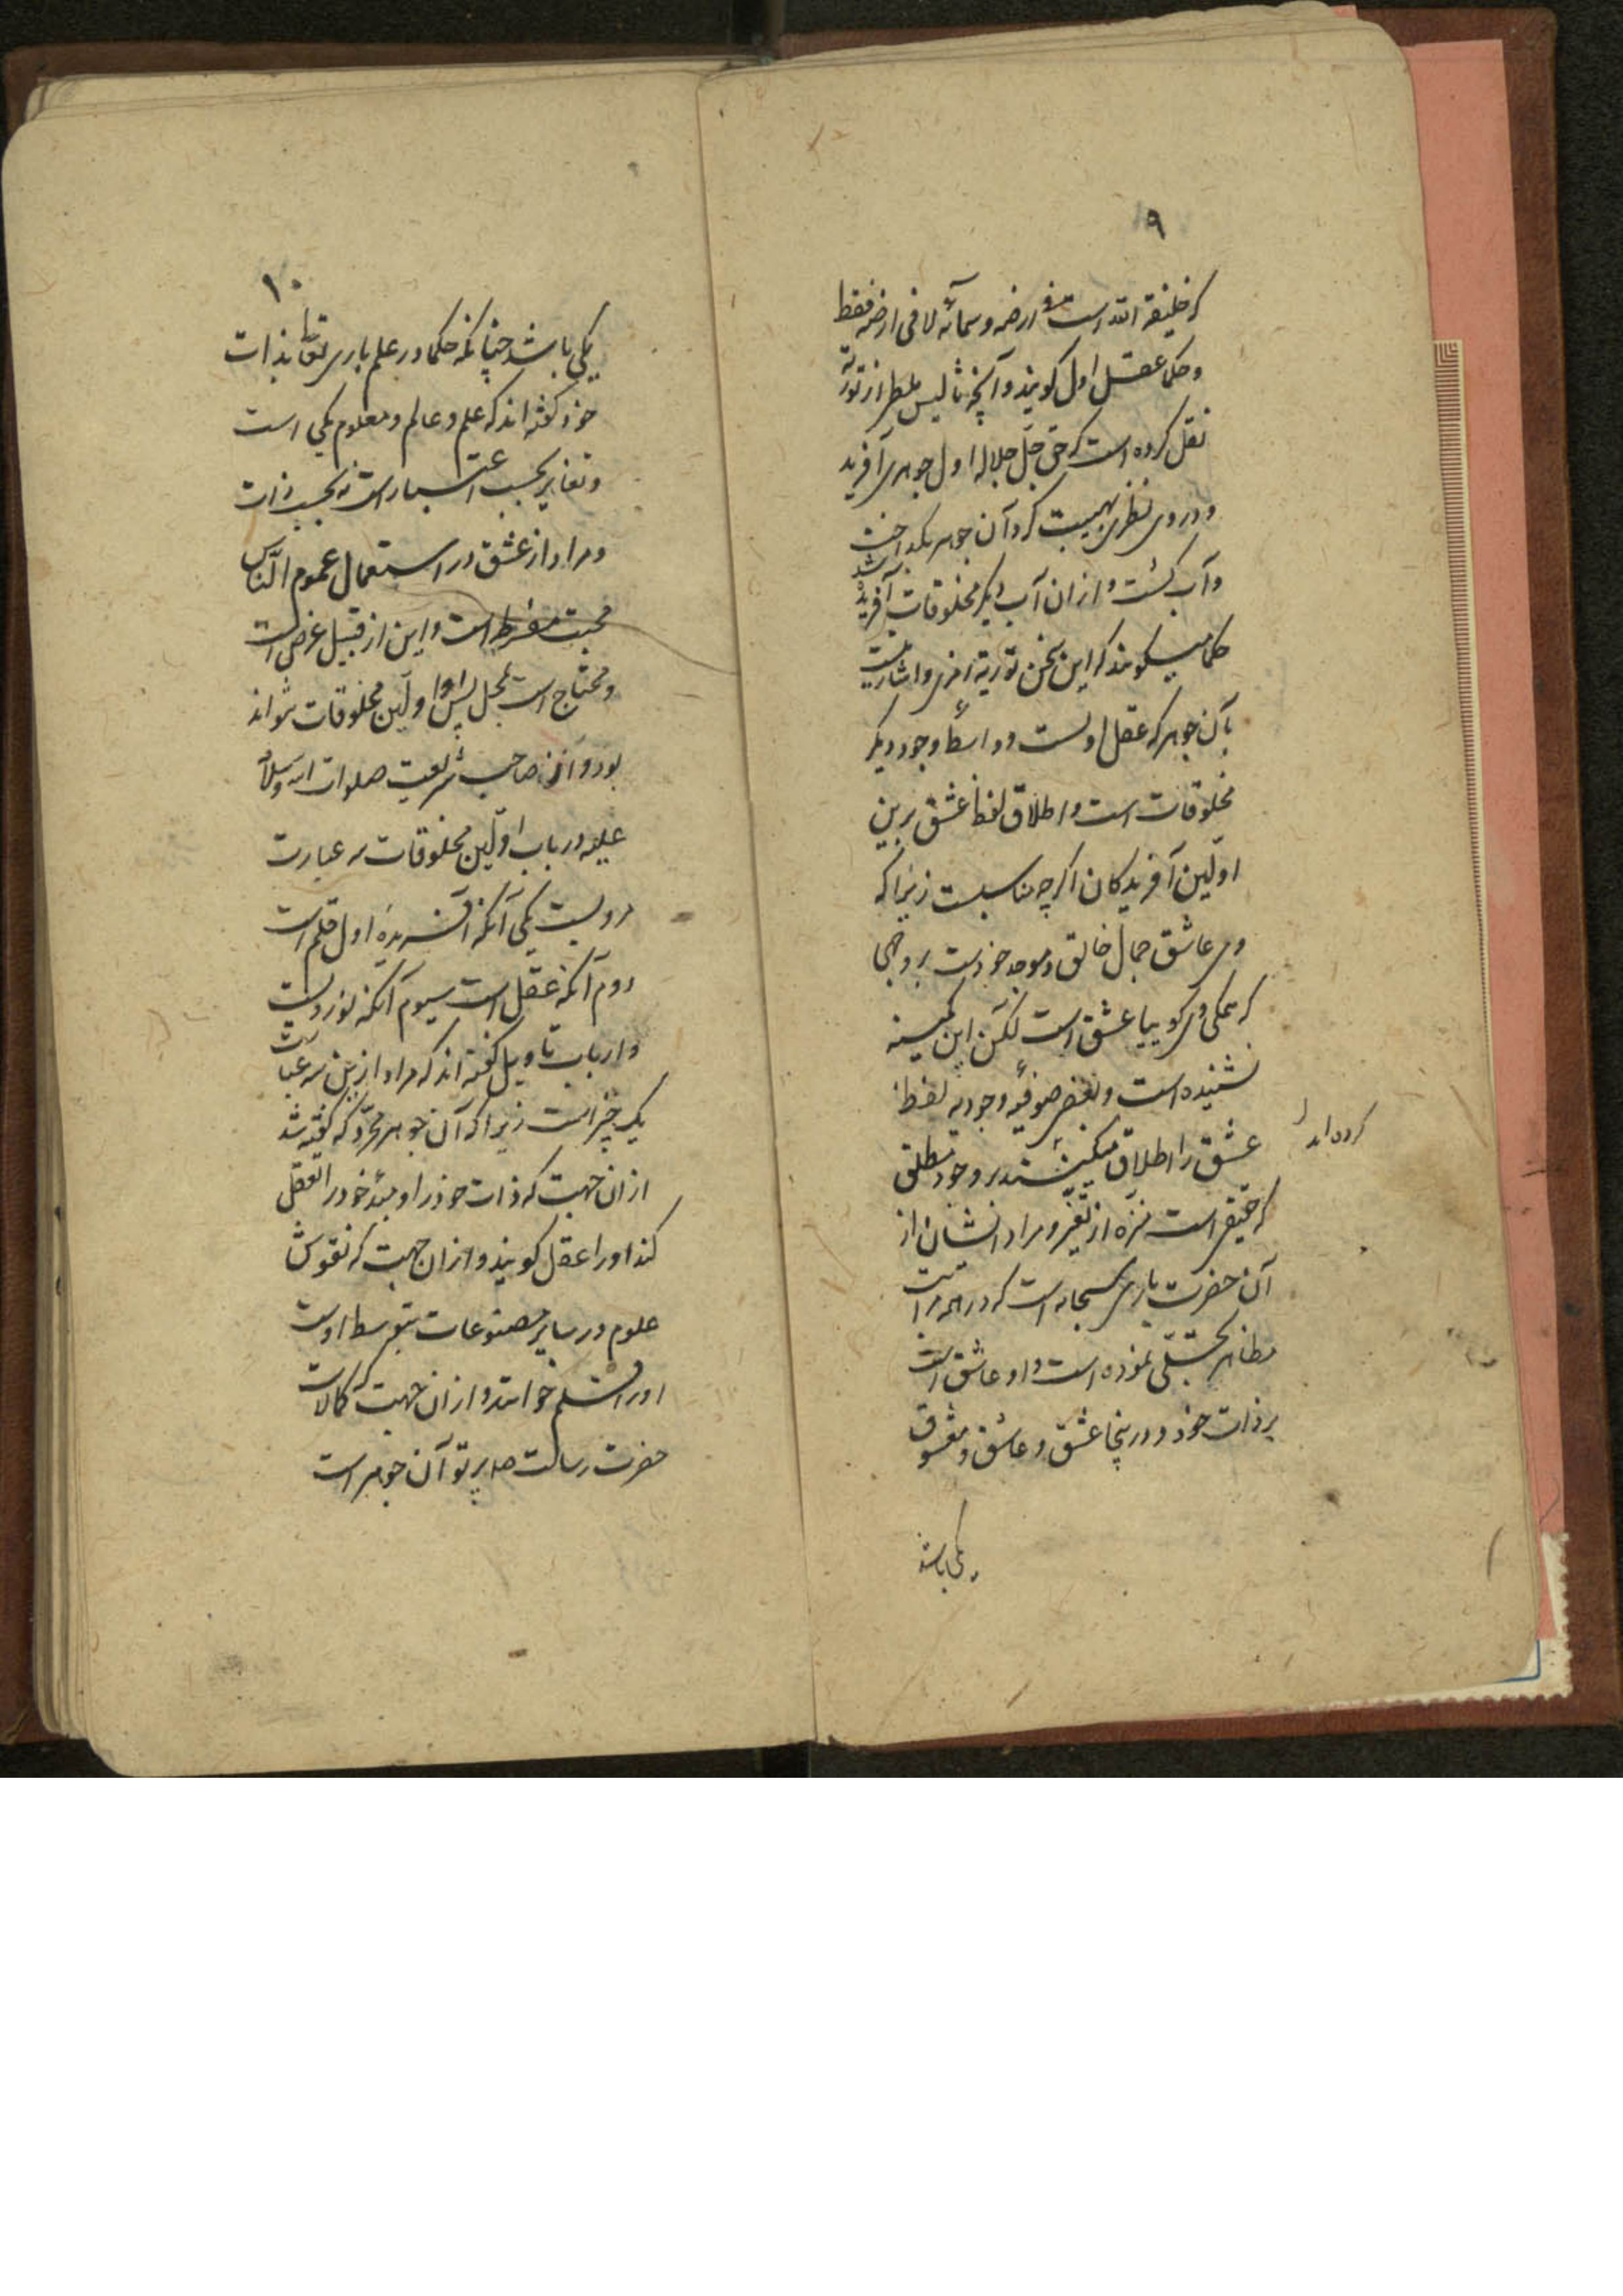 ۹
که خلیفة الله است فی ارضه و سمائه لا فی ارضه فقط
و حکما عقل اول کویند و آنچه ثالیس ملطی از توریة
نقل کرده است که حق جل جلاله اول جوهری آفرید
و در وی نظری بهیبت کرد آن جوهر بکداخت
و آب کشت و از ان آب دیکر مخلوقات آفریده شد
حکما میکویند که این سخن توریة رمزی و اشارتیست
بآن جوهر که عقل اولست و واسطهٔ وجود دیکر
مخلوقات است و اطلاق لفظ عشق برین
اولین آفریدکان اکرچه مناسبست زیرا که
وی عاشق جمال خالق و موجد خودست بر وجهی
که همکی وی کوییا عشق است لکن این کمینه
نشنیده است و بعضی صوفیهٔ وجودیه لفظ
عشق را اطلاق میکنند بر وجود مطلق
کرده اند
که حقیقی است منزه از تغیر و مراد ایشان از
آن حضرت باری سبحانه است که در همه مراتب
مظاهر تجلی نموده است و او عاشق است
بر ذات خود و درینجا عشق و عاشق و معشوق
یکی باشد
۱۰
یکی باشد چنانکه حکما در علم باری تعالی بذات
خود کفته اند که علم و عالم و معلوم یکی است
و تغایر بحسب اعتبار است نه بحسب ذات
و مراد از عشق در استعمال عموم الناس
محبت مفرط است و این از قبیل عرض است
و محتاج است بمحل پس او اولین مخلوقات نتواند
بود و از صاحب شریعت صلوات الله و سلامه
علیه در باب اولین مخلوقات سه عبارت
مرویست یکی آنکه آفریدهٔ اول قلم است
دوم آنکه عقل است سیوم آنکه نور ویست
و ارباب تاویل کفته اند که مراد ازین سه عبارت
یک چیز است زیرا که آن جوهر مجرد که کفته شد
از ان جهت که ذات خود را و مبدء خود را تعقل
کند او را عقل کویند و از ان جهت که نقوش
علوم در سایر مصنوعات بتوسط اوست
او را قلم خوانند و از ان جهت که کمالات
حضرت رسالت صه پرتو آن جوهر است